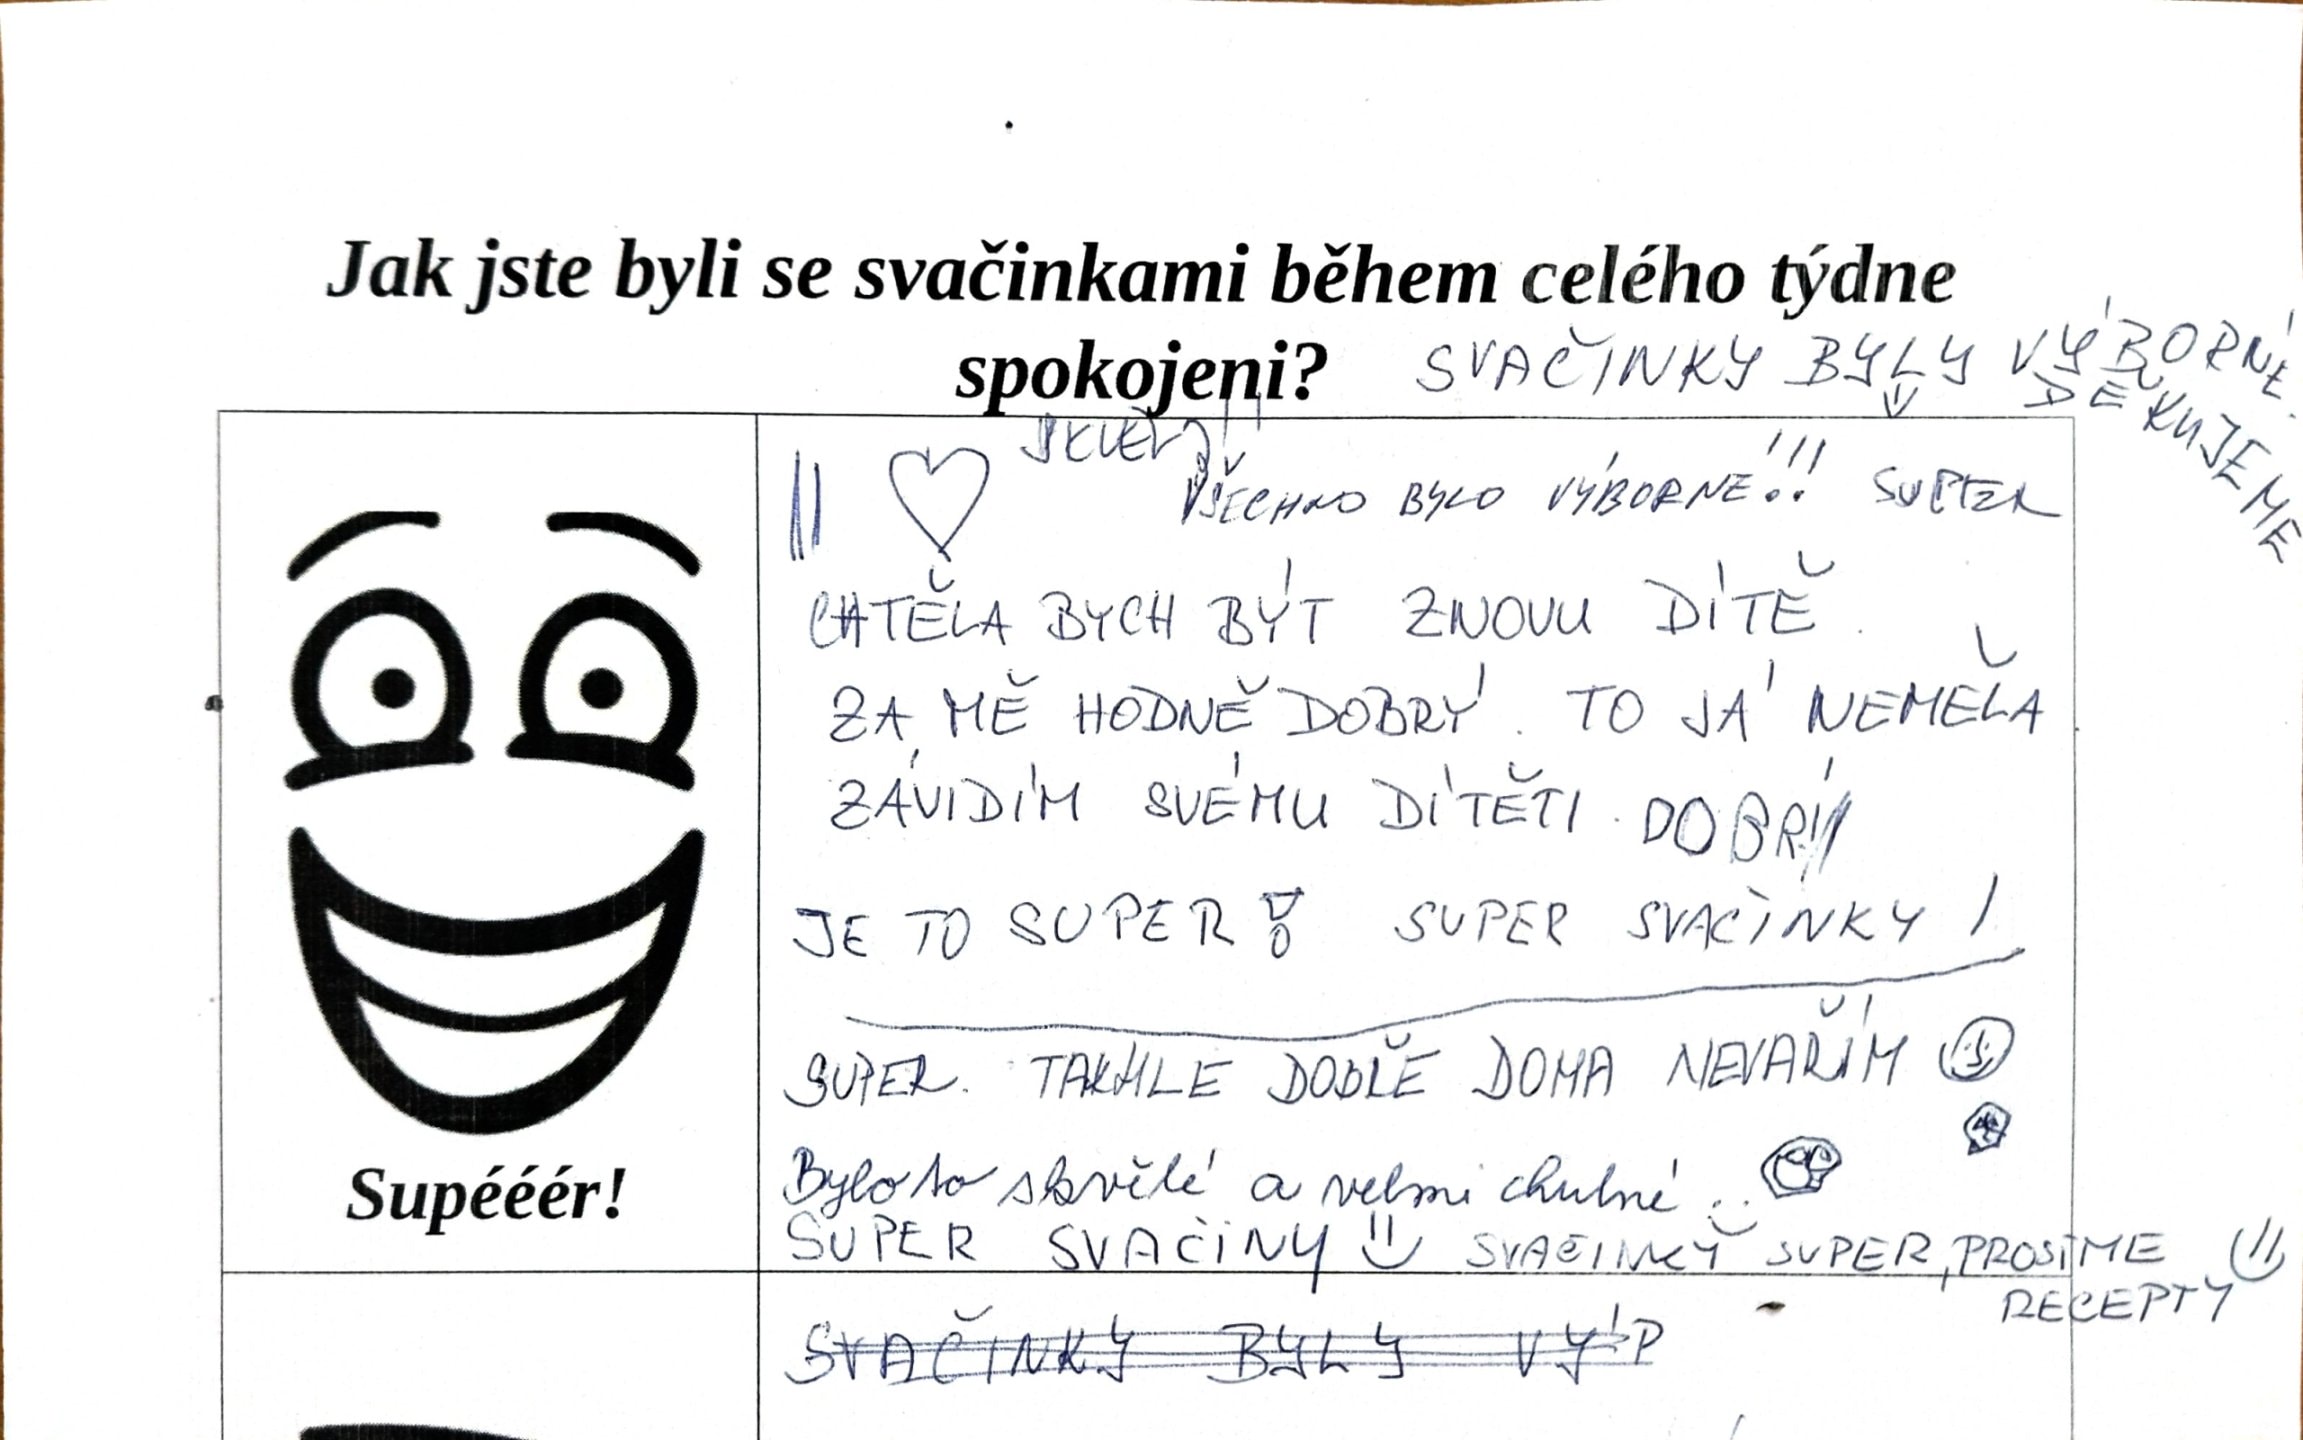 Jak jste byli se svačinkami během celého týdne
spokojeni?
SVAČINKY BYLY VÝBORNÉ.
DĚKUJEME
VŠECHNO BYLO VÝBORNÉ!!! SUPER
CHTĚLA BYCH BÝT ZNOVU DÍTĚ.
ZA MĚ HODNĚ DOBRÝ. TO JÁ NEMĚLA.
ZÁVIDÍM SVÉMU DÍTĚTI. DOBRÝ
JE TO SUPER! SUPER SVAČINKY!
SUPER. TAKHLE DOBŘE DOMA NEVAŘÍM
Bylo to skvělé a velmi chutné..
Supééér!
SUPER SVAČINY SVAČINKY SUPER, PROSÍME
RECEPTY
SVAČINKY BYLY VÝP